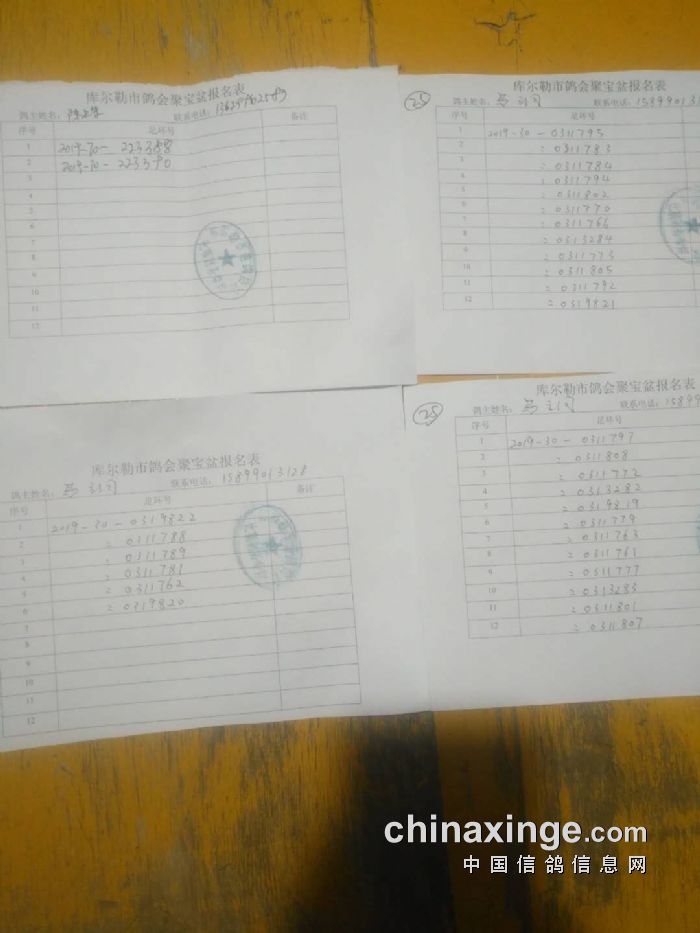 库尔勒市鸽会聚宝盆报名表
鸽主姓名: 联系电话:
序号 足环号 备注
1 2019-30- 223388
2 2019-30- 223390
3
4
5
6
7
8
9
10
11
12
25
库尔勒市鸽会聚宝盆报名表
鸽主姓名: 马 联系电话: 158990131
序号 足环号 备注
1 2019-30-0311795
2 = 0311783
3 = 0311784
4 = 0311794
5 = 0311802
6 = 0311770
7 = 0311766
8 = 0313284
9 = 0311773
10 = 0311805
11 = 0311792
12 = 0319821
库尔勒市鸽会聚宝盆报名表
鸽主姓名: 马 联系电话: 15899013128
序号 足环号 备注
1 2019-30-0319822
2 = 0311788
3 = 0311789
4 = 0311781
5 = 0311762
6 = 0319820
7
8
9
10
11
12
25
库尔勒市鸽会聚宝盆报名表
鸽主姓名: 马 联系电话: 15899
序号 足环号
1 2019-30-0311797
2 = 0311808
3 = 0311772
4 = 0313282
5 = 0319819
6 = 0311779
7 = 0311763
8 = 0311761
9 = 0311777
10 = 0313283
11 = 0311801
12 = 0311807
chinaxinge.com
中国信鸽信息网